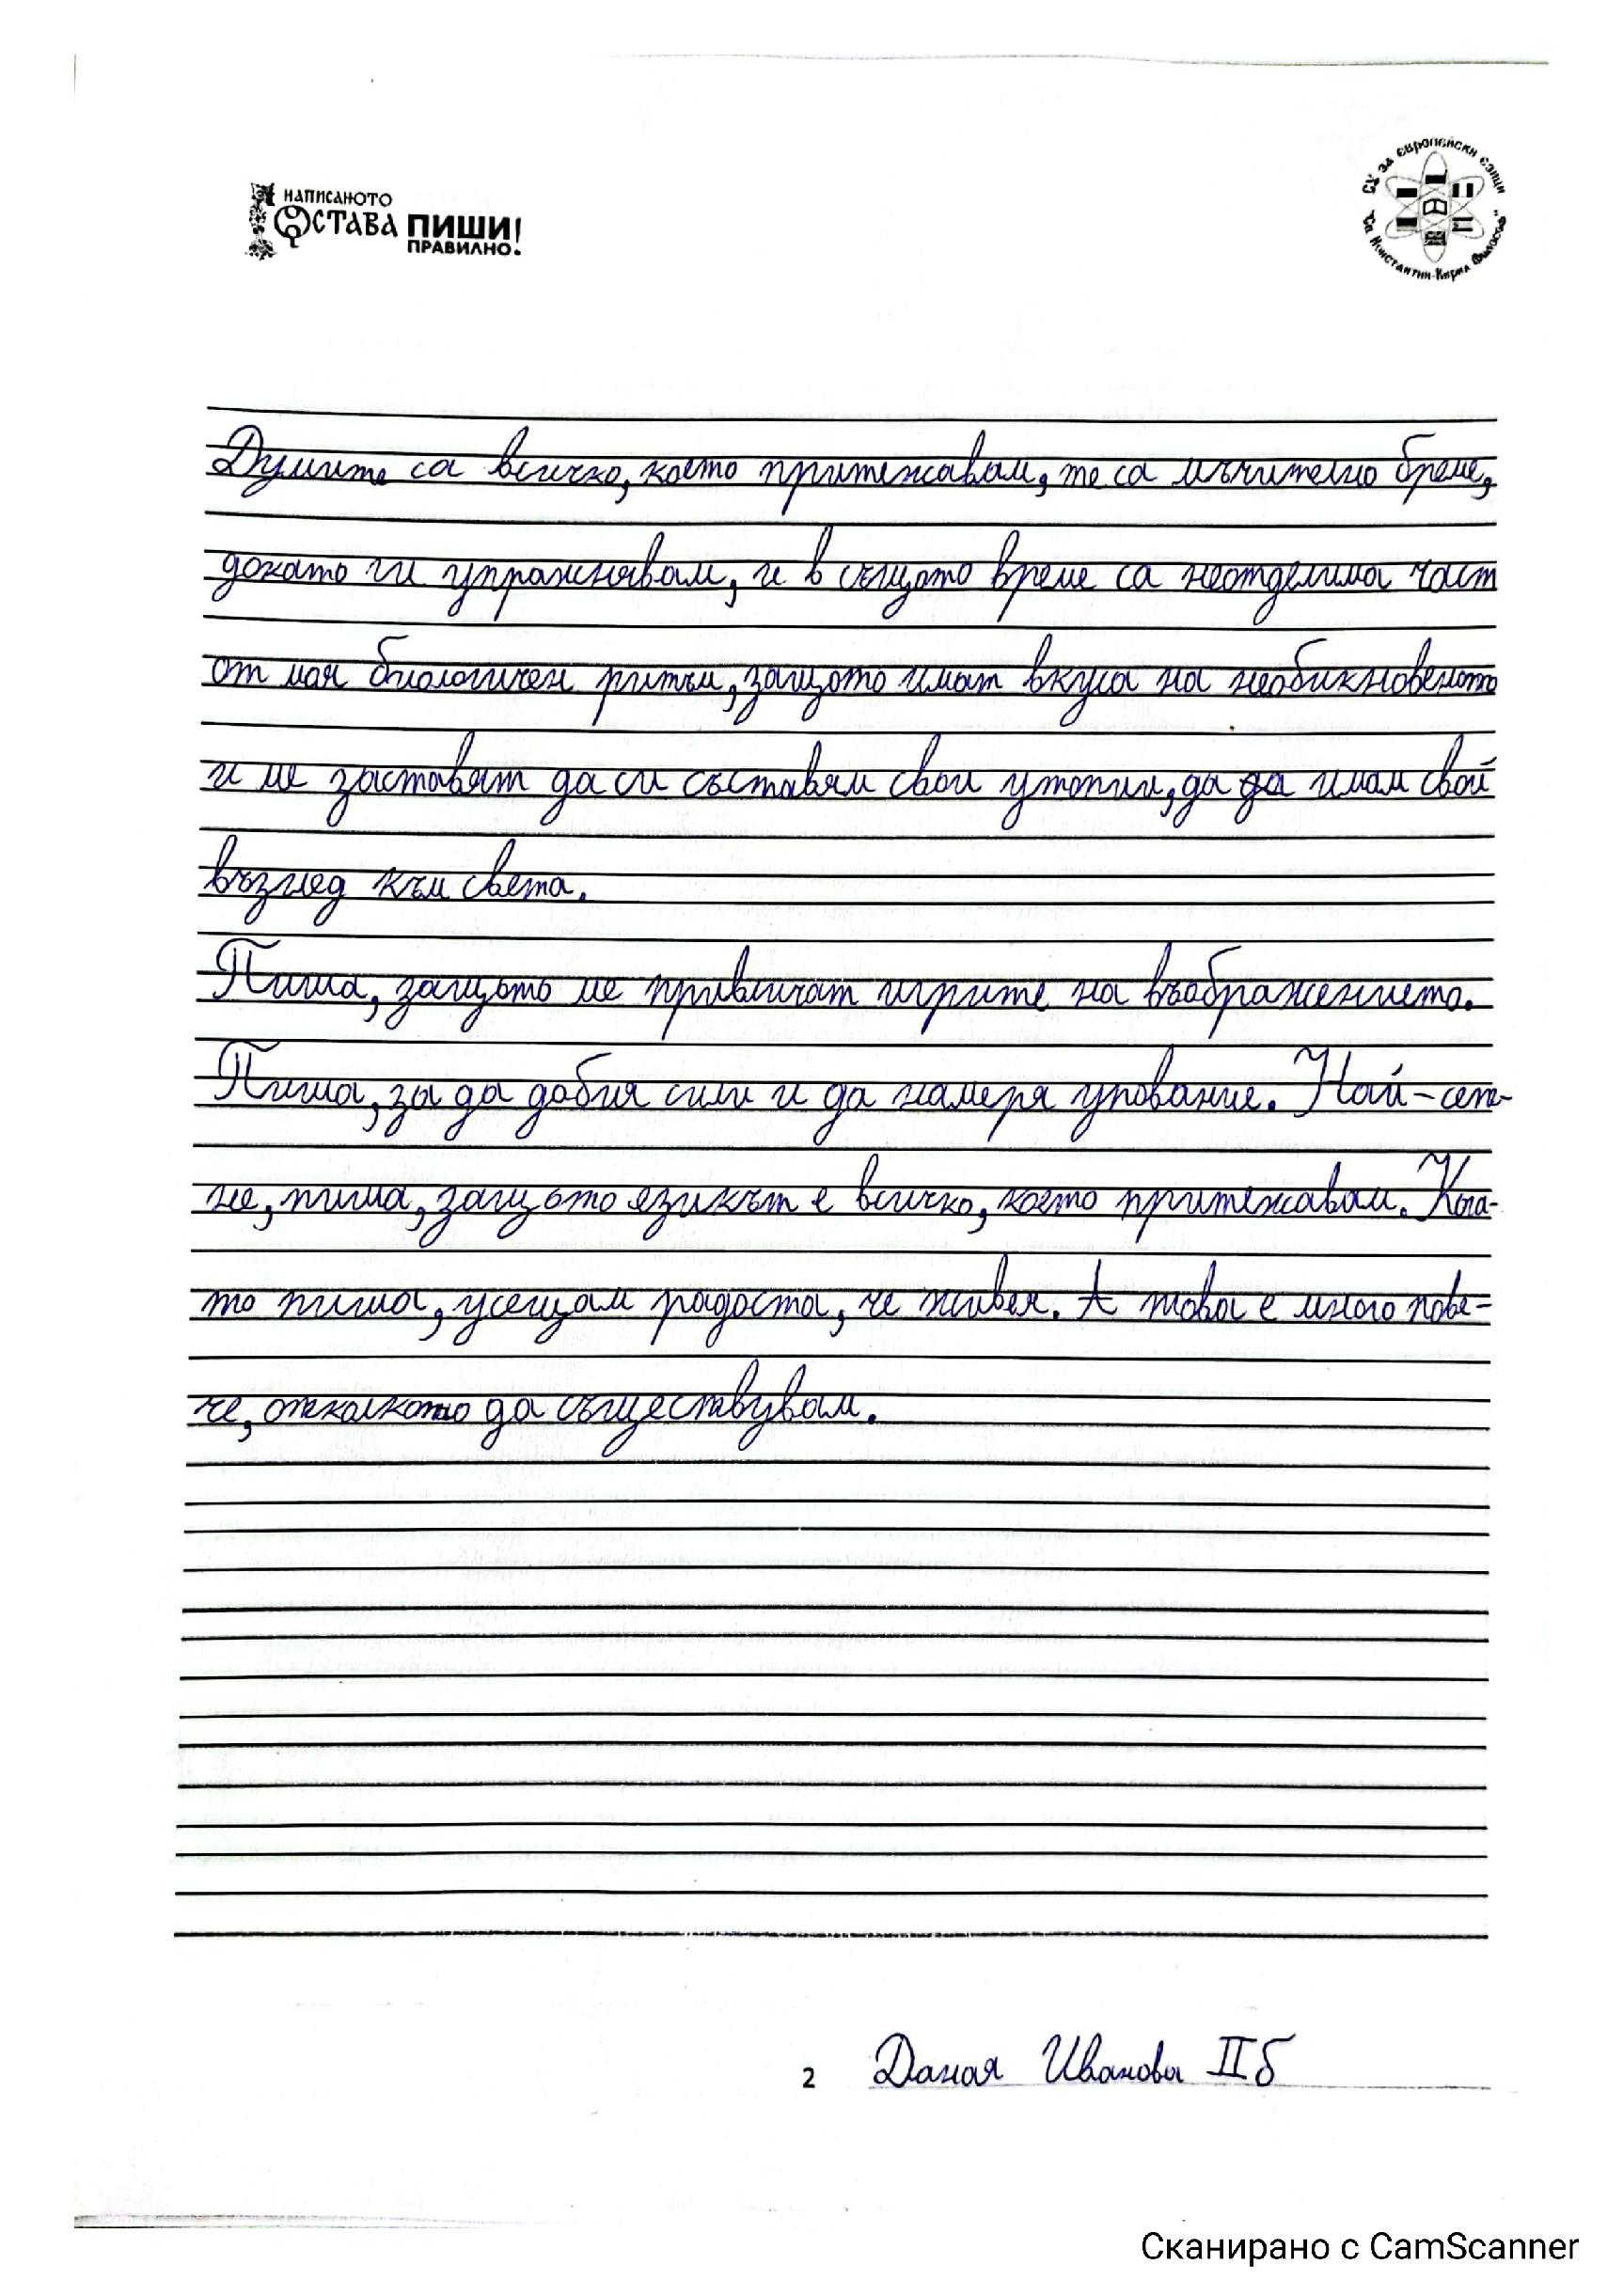 НАПИСАНОТО
ОСТАВА ПИШИ!
ПРАВИЛНО!
СУ за европейски езици
"Св. Константин-Кирил Философ"
Думите са всичко, което притежавам, те са мъчително бреме,
докато ги упражнявам, и в същото време са неотделима част
от моя биологичен ритъм, защото имат вкуса на необикновеното
и ме заставят да си съставям свои утопии, да да имам свой
възглед към света.
Пиша, защото ме привличат игрите на въображението.
Пиша, за да добия сили и да намеря упование. Най-сет-
не, пиша, защото езикът е всичко, което притежавам. Кога-
то пиша, усещам радостта, че живея. А това е много пове-
че, отколкото да съществувам.
2 Даная Иванова IIб
Сканирано с CamScanner